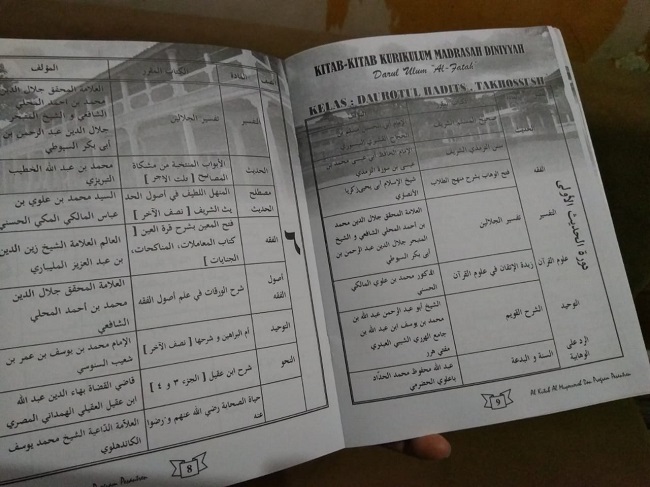 المؤلف
الكتاب المقرر
المادة
التفسير
تفسير الجلالين
العلامة المحقق جلال الدين
محمد بن احمد المحلي
الشافعي و الشيخ المتبحر
جلال الدين عبد الرحمن بن
أبى بكر السيوطي
الحديث
الأبواب المنتجبة من مشكاة
المصابيح [ ثلث الآخر ]
محمد بن عبد الله الخطيب
التبريزي
مصطلح
الحديث
المنهل اللطيف في أصول الحد
يث الشريف [ نصف الآخر ]
السيد محمد بن علوي بن
عباس المالكي المكي الحسني
٦
الفقه
فتح المعين بشرح قرة العين [
كتاب المعاملات، المناكحات،
الجنايات ]
العالم العلامة الشيخ زين الدين
بن عبد العزيز المليباري
أصول
الفقه
شرح الورقات في علم أصول الفقه
العلامة المحقق جلال الدين
محمد بن أحمد المحلي
الشافعي
التوحيد
أم البراهين و شرحها [ نصف الآخر ]
الإمام محمد بن يوسف بن عمر بن
شعيب السنوسي
النحو
شرح ابن عقيل [ الجزء ٣ و ٤ ]
قاضي القضاة بهاء الدين عبد الله
ابن عقيل العقيلي الهمداني المصري
حياة الصحابة رضي الله عنهم و رضوا
عنه
العلامة الداعية الشيخ محمد يوسف
الكاندهلوي
8
KITAB-KITAB KURIKULUM MADRASAH DINIYYAH
Darul Ulum "Al-Fatah"
KELAS : DAUROTUL HADITS, TAKHOSSUSH
دورة الحديث الأولى
الحديث
صحيح مسلم الشريف
سنن الترمذي الشريف
الفقه
فتح الوهاب بشرح منهج الطلاب
شيخ الإسلام أبى يحيى زكريا
الأنصاري
التفسير
تفسير الجلالين
العلامة المحقق جلال الدين محمد
بن احمد المحلي الشافعي و الشيخ
المتبحر جلال الدين عبد الرحمن بن
أبى بكر السيوطي
علوم القرآن
زبدة الإتقان في علوم القرآن
الدكتور محمد بن علوي المالكي
الحسني
التوحيد
الشرح القويم
الشيخ أبو عبد الرحمن عبد الله بن
محمد بن يوسف بن عبد الله بن
جامع الهرري الشيبي العبدري
مفتي هرر
الرد على
الوهابية
السنة و البدعة
عبد الله محفوظ محمد الحداد
باعلوي الحضرمي
9